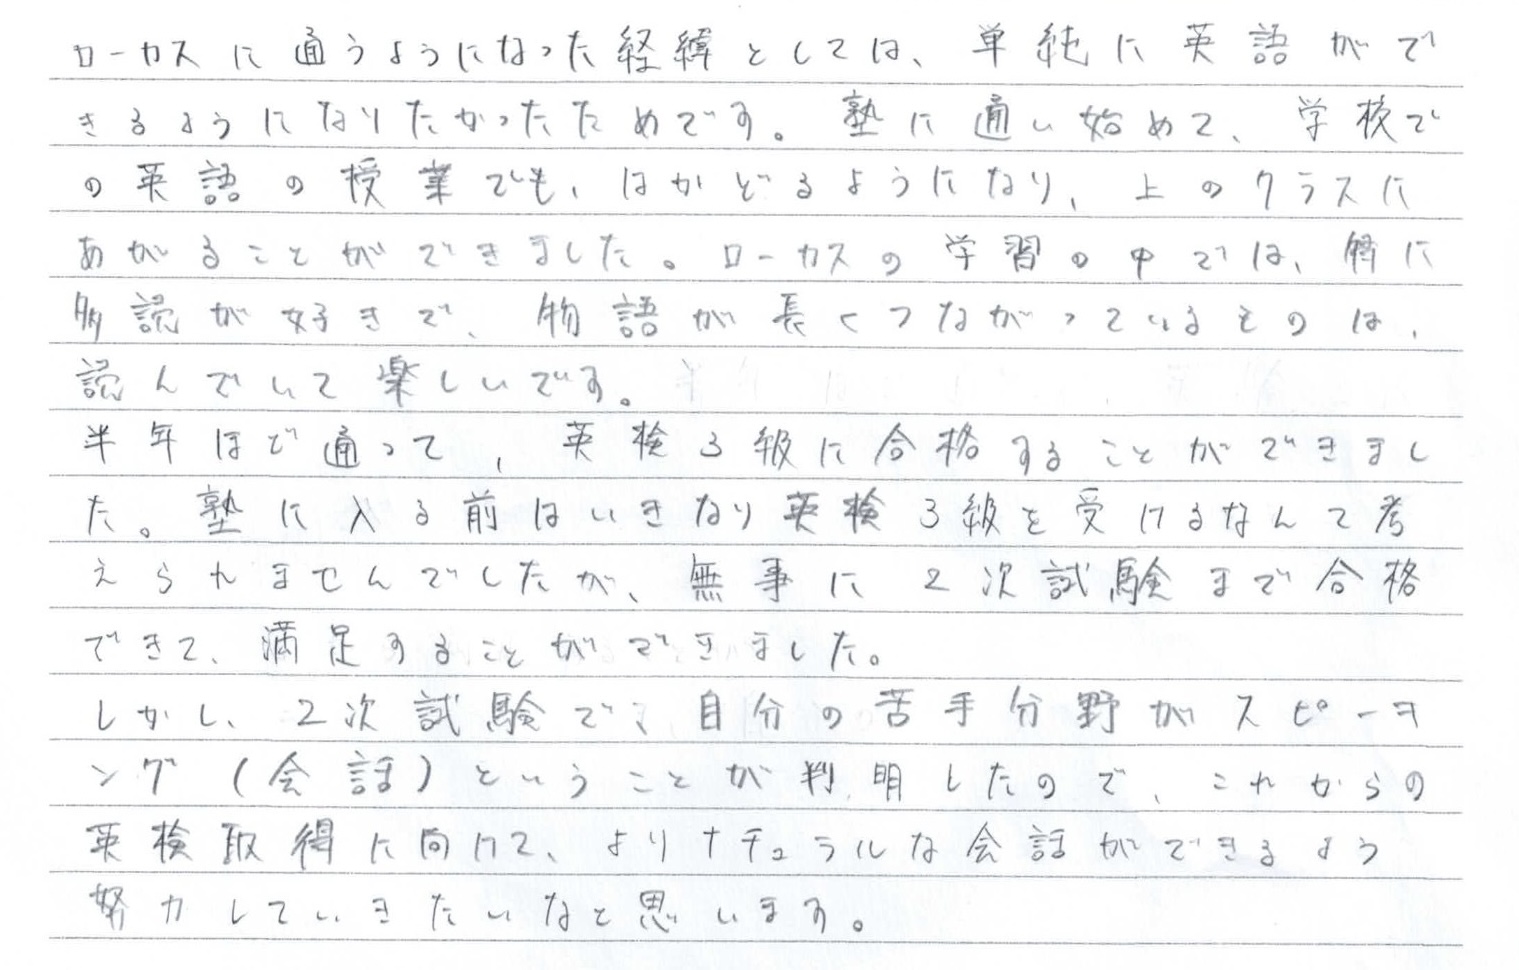 ローカスに通うようになった経緯としては、単純に英語がで
きるようになりたかったためです。塾に通い始めて、学校で
の英語の授業でも、はかどるようになり、上のクラスに
あがることができました。ローカスの学習の中では、特に
多読が好きで、物語が長くつながっているものは、
読んでいて楽しいです。
半年ほど通って、英検3級に合格することができまし
た。塾に入る前はいきなり英検3級を受けるなんて考
えられませんでしたが、無事に2次試験まで合格
できて、満足することができました。
しかし、2次試験で、自分の苦手分野がスピーキ
ング(会話)ということが判明したので、これからの
英検取得に向けて、よりナチュラルな会話ができるよう
努力していきたいなと思います。